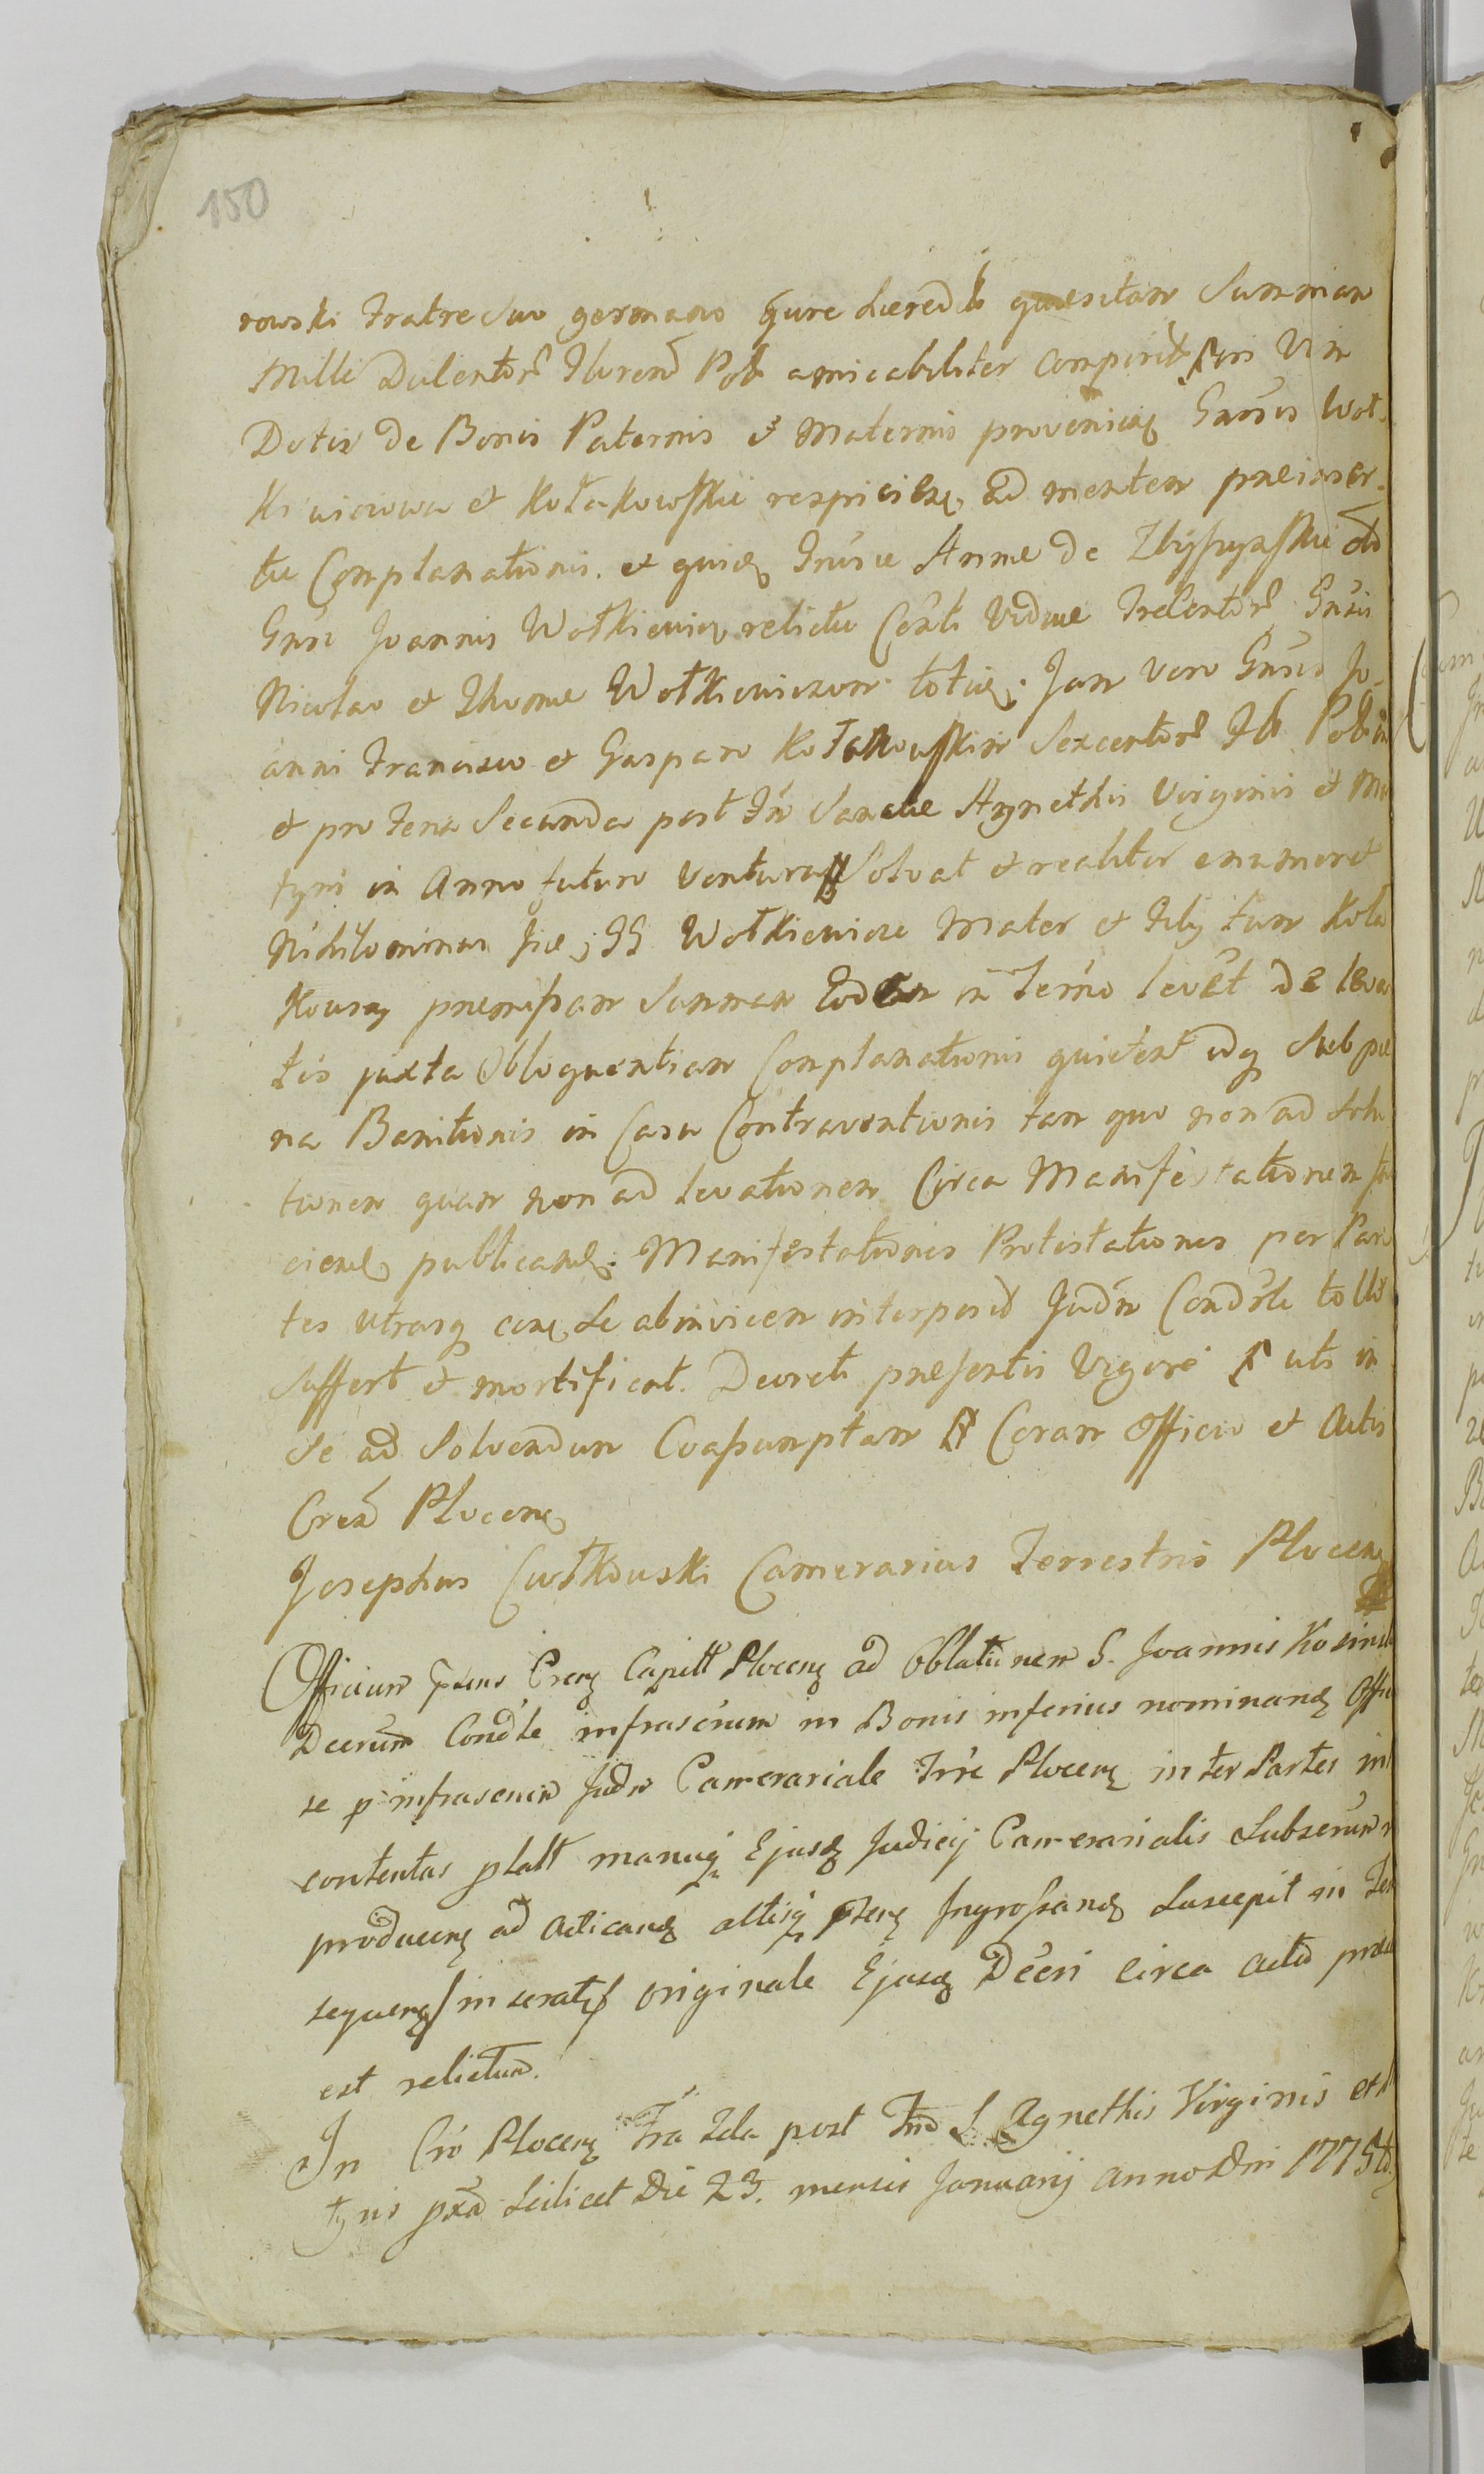 150
rowski Fratre Suo germano Jure haeredit quaesitam Summam
Mille Ducentor Floren Pol amicabiliter
Dotis de Bonis Paternis et Maternis provenien Gnosis Wot-
kiewiciowa et Kołakowskie respicien ad mentem praeinser-
tae Complanationis. et quidem Gnosae Annae de olim
Gnosi Joannis Wotkiewicz relictae Conth Viduae Trecentor Gnosis
Nicolao et Thomae Wotkiewiczom totid. Jam vero Gnosis Jo-
anni Francisco et Gasparo Kołakowskim Sexcentor Fl Pol in
et pro Feria Secunda post Fm Sanctae Agnethis Virginis et Mar
tyris in Anno futuro ventura Solvat et realiter enumeret
Nihilominus Wotkiewicze Mater et Filij tum Koła
kowscy praemissam Summam Eodem in Termino levet de leva
tis juxta Obloquentiam Complanationis quietent idq Sub poe
na Banitionis in Casu Contraventionis tam quo non ad Solu
tionem quam non ad levationem Circa Manifestationem fa
ciend publicand. Manifestationes Protestationes per Par
tes utrasq cone Se abinvicem interposit Judm Condsle tollit
Suffert et mortificat. Decreti praesentis Vigore uts in
Se ad Solvendum Coassumptam Coram Officio et Actis
Cren Plocen
Josephus Cutkowski Camerarius Terrestris Plocen
Officium Praens Cren Capitl Plocen ad Oblationem G. Joannis Kosin
Decrum Condle infrascrum in Bonis inferius nominand Offi
se p infrascrum Judm Camerariale Trre Plocen inter Partes in
contentas plalt manuq Ejusd Judicij Camerarialis Subscrum
producen ad Acticand altisq psen Ingrossand Suscepit in Ten
sequen inserat originale Ejusd Decri circa actu prod
est relictum.
In Cro Plocen Fra 2da post Fm S. Agnethis Virginis et
tyris pxa Scilicet Die 23. mensis Januarij anno Dni 1775to